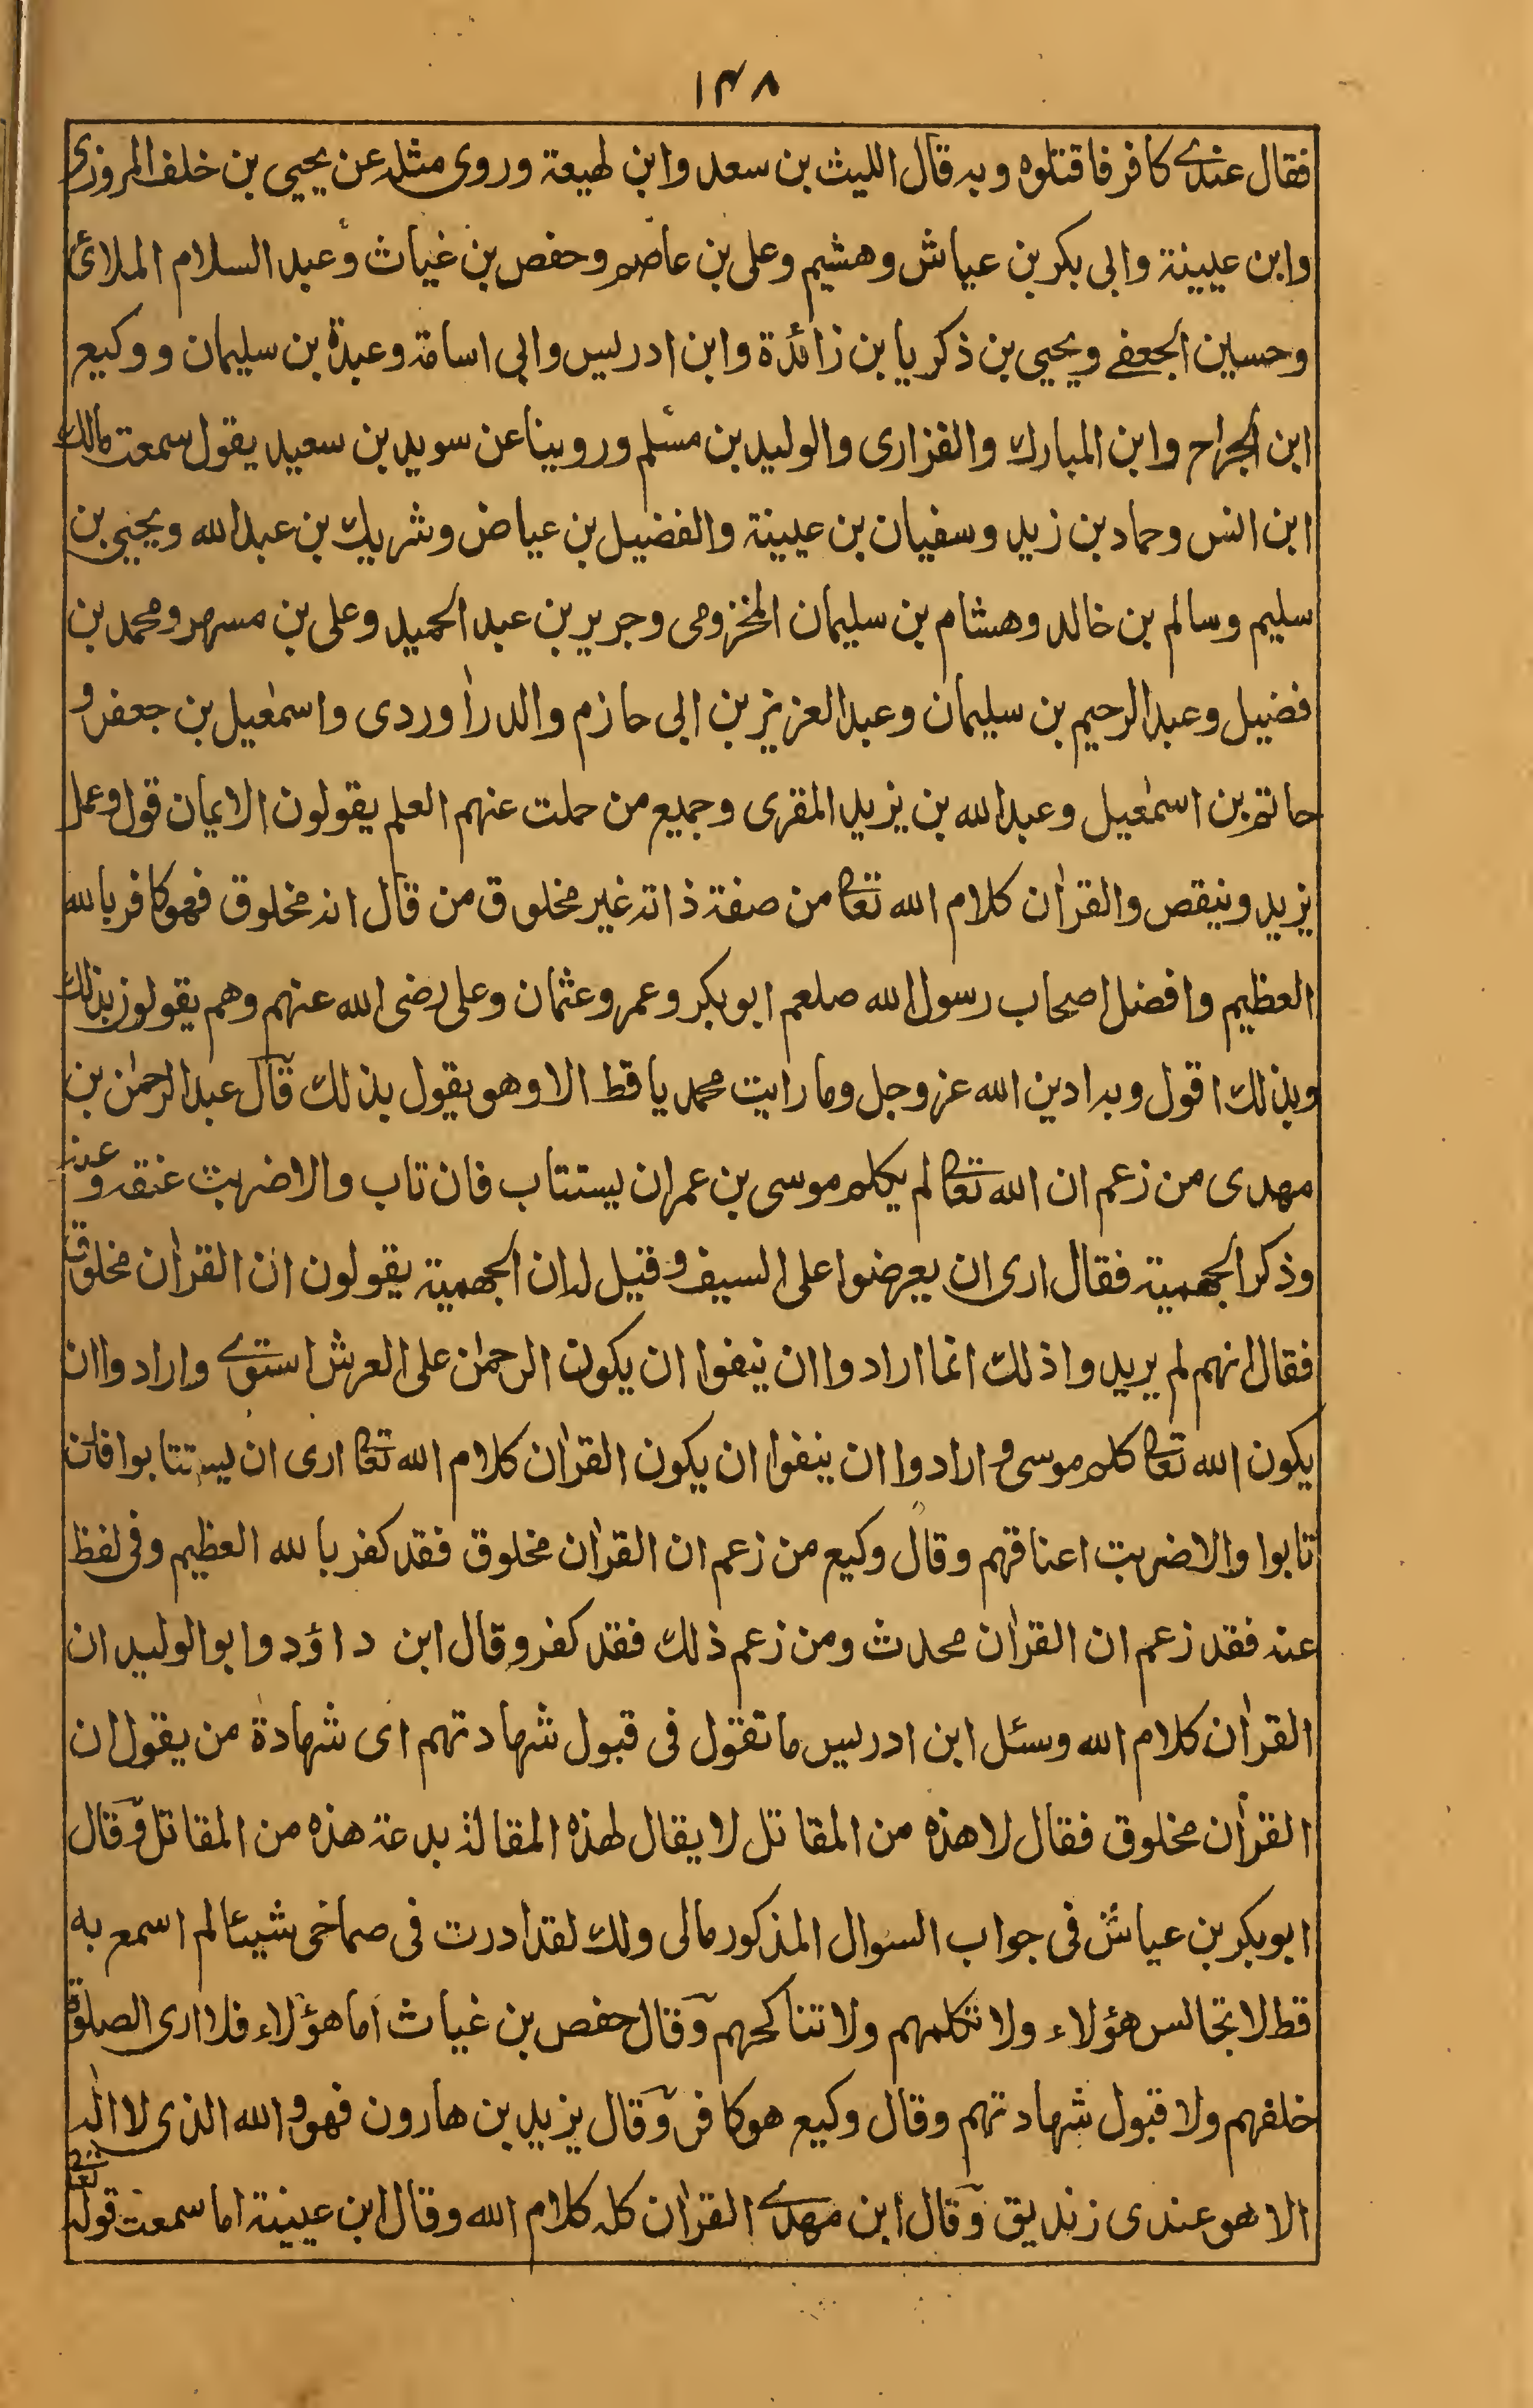 ١٣٨
فقال عندے كافر فاقتلوه وبه قال الليث بن سعد وابن لهيعة وروى مثله عن يحيى بن خلف المروزى
وابن عيينة وابى بكر بن عياش وهشيم وعلى بن عاصم وحفص بن غياث وعبد السلام الملائى
وحسين الجعفے ويحيى بن ذكريا بن زائدة وابن ادريس وابى اسامة وعبدة بن سليمان ووكيع
ابن الجراح وابن المبارك والفزارى والوليد بن مسلم وروينا عن سويد بن سعيد يقول سمعت مالك
ابن انس وحماد بن زيد وسفيان بن عيينة والفضيل بن عياض وشريك بن عبد الله ويحيى بن
سليم وسالم بن خالد وهشام بن سليمان المخزومى وجرير بن عبد الحميد وعلى بن مسهر ومحمد بن
فضيل وعبد الرحيم بن سليمان وعبد العزيز بن ابى حازم والدراوردى واسمٰعيل بن جعفر و
حاتم بن اسمٰعيل وعبد الله بن يزيد المقرى وجميع من حملت عنهم العلم يقولون الايمان قول وعمل
يزيد وينقص والقراٰن كلام الله تعا من صفة ذاته غير مخلوق من قال انه مخلوق فهو كافر بالله
العظيم وافضل اصحاب رسول الله صلعم ابو بكر وعمر وعثمان وعلى رضى الله عنهم وهم يقولون بذلك
وبذلك اقول وبه ادين الله عز وجل وما رايت محمد يا قط الا وهو يقول بذلك قال عبد الرحمٰن بن
مهدى من زعم ان الله تعا لم يكلم موسى بن عمران يستتاب فان تاب والا ضربت عنقه وعنه
وذكر الجهمية فقال ارى ان يعرضوا على السيف وقيل له ان الجهمية يقولون ان القراٰن مخلوق
فقال انهم لم يريدوا ذلك انما ارادوا ان ينفوا ان يكون الرحمٰن على العرش استوے وارادوا ان
يكون الله تعا كلم موسى وارادوا ان ينفوا ان يكون القراٰن كلام الله تعا ارى ان يستتابوا فان
تابوا والا ضربت اعناقهم وقال وكيع من زعم ان القراٰن مخلوق فقد كفر بالله العظيم وفى لفظ
عنه فقد زعم ان القراٰن محدث ومن زعم ذلك فقد كفر وقال ابن داؤد وابو الوليد ان
القراٰن كلام الله وسئل ابن ادريس ما تقول فى قبول شهادتهم اى شهادة من يقول ان
القراٰن مخلوق فقال لا هذه من المقاتل لا يقال لهذه المقالة بدعة هذه من المقاتل وقال
ابو بكر بن عياش فى جواب السوال المذكور مالى ولك لقد ادرت فى صماخى شيئا لم اسمع به
قط لا تجالس هؤلاء ولا تكلمهم ولا تناكحهم وقال حفص بن غياث اما هؤلاء فلا ارى الصلوة
خلفهم ولا قبول شهادتهم وقال وكيع هو كافر وقال يزيد بن هارون فهو والله الذى لا الٰه
الا هو عندى زنديق وقال ابن مهدے القراٰن كله كلام الله وقال ابن عيينة اما سمعت قوله تعا